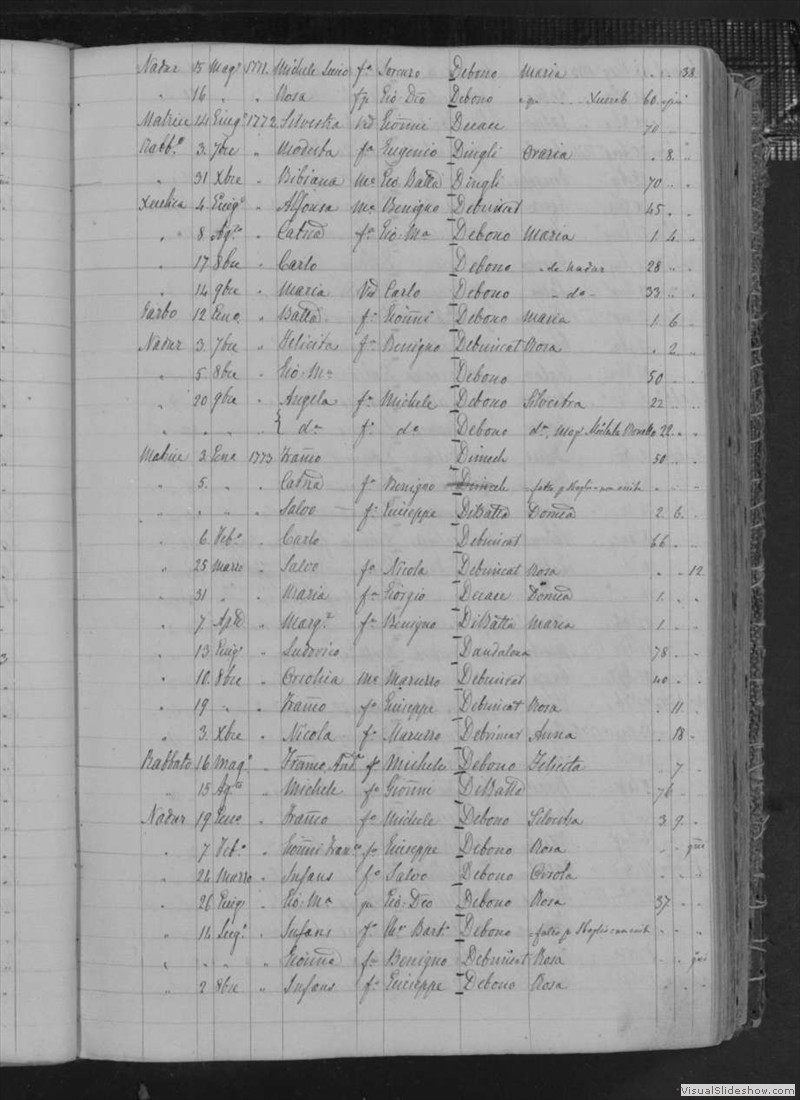 Nadur 15 Magº 1771 Michele fª Lorenzo Debono Maria . . 38
" 16 " " Rosa Gio Dio Debono Xuereb 60
Matrice 14 Giugº 1772 Silvestra Vid Giõnni Decace 70
Rabbº 3 7bre " Modesta fª Eugenio Dingli Oraria . 8 "
" 31 Xbre " Bibiana Mª Gio Batta Dingli 70 . .
Xeuchia 4 Giugº " Alfonsa Mª Benigno Debrincat 45 . .
" 8 Agto " Catnã fª Gio Mª Debono Maria 1 4 .
" 17 8bre " Carlo Debono da Nadur 28 . .
" 14 9bre " Maria Vid Carlo Debono - dº - 33 . .
Garbo 12 Eno " Batta fº Giõnni Debono Maria 1 6 .
Nadur 3 7bre " Felicita fª Benigno Debrincat Rosa . 2 .
" 5 8bre " Gio Mª Debono 50 . .
" 20 9bre " Angela fª Michele Debono Silvestra 22 . .
" " " " dª fª dº Debono dª, mog Michele 22 . .
Matrice 3 Ena 1773 Frañco Dimech 50 . .
" 5 " " Catnã fª Benigno Dimech
" " " " Salvo fº Giuseppe DiBatta Domcã 2 6 .
" 6 Febº " Carlo Debrincat 66 . .
" 25 Marzo " Salvo fº Nicola Debrincat Rosa . . 12
" 31 " " Maria fª Giorgio Decace Domcã 1 . .
" 7 Aple " Margª fª Benigno DiBatta Maria 1 . .
" 13 Giugº " Ludovico Dandalona 78 . .
" 10 8bre " Orechia Mª Maruzzo Debrincat 40 . .
" 19 " " Frañco fº Giuseppe Debrincat Rosa . 11 .
" 3 Xbre " Nicola fº Maruzzo Debrincat Anna . 18 .
Rabbato 16 Magº " Frañco Andª fº Michele Debono Felicita . 7 .
" 15 Agto " Michele fº Giõnni DiBatta 76 . .
Nadur 19 Eno " Frañco fº Michele Debono Silvestra 3 9 .
" 7 Febº " Giõnni Franco fº Giuseppe Debono Rosa . . gni
" 24 Marzo " Infans fº Salvo Debono Orsola . . .
" 26 Giugº " Gio Mª Gio Dio Debono Rosa 37 . .
" 14 Lugº " Infans fº Bartº Debono
" " " " Giõnnã fª Benigno Debrincat Rosa . . gni
" 2 8bre " Infans fº Giuseppe Debono Rosa
VisualSlideshow.com